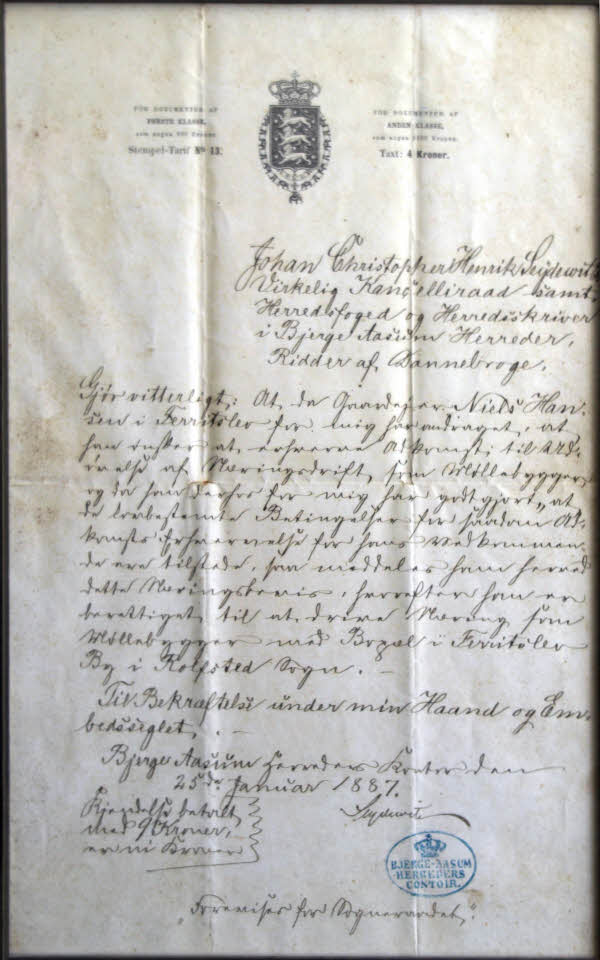 FOR DOCUMENTER AF
FØRSTE KLASSE,
Stempel-Tarif No 13.
FOR DOCUMENTER AF
ANDEN KLASSE,
Taxt: 4 Kroner.
Johan Christopher Henrik Seydewitz
Virkelig Kancelliraad samt
Herredsfoged og Herredsskriver
i Bjerge Aasum Herreder,
Ridder af Dannebroge.
Gjør vitterligt: At, da Gaardejer Niels Han-
sen i Ferritslev for mig har andraget, at
han ønsker at erhverve Adkomst til Ud-
øvelse af Næringsdrift som Møllebygger
og da han derhos for mig har godtgjort, at
de lovbestemte Betingelser for saadan Ad-
komsts Erhvervelse for hans Vedkommen-
de ere tilstede, saa meddeles ham herved
dette Næringsbevis, hvorefter han er
berettiget til at drive Næring som
Møllebygger med Bopæl i Ferritslev
By i Rolfsted Sogn. -
Til Bekræftelse under min Haand og Em-
bedsseglet. -
Bjerge Aasum Herreders Kontor den
25de Januar 1887.
Seydewitz
Kjendelse betalt
med 9 Kroner,
er ni Kroner
BJERGE-AASUM
HERREDERS
CONTOIR.
"Forevises for Sogneraadet".